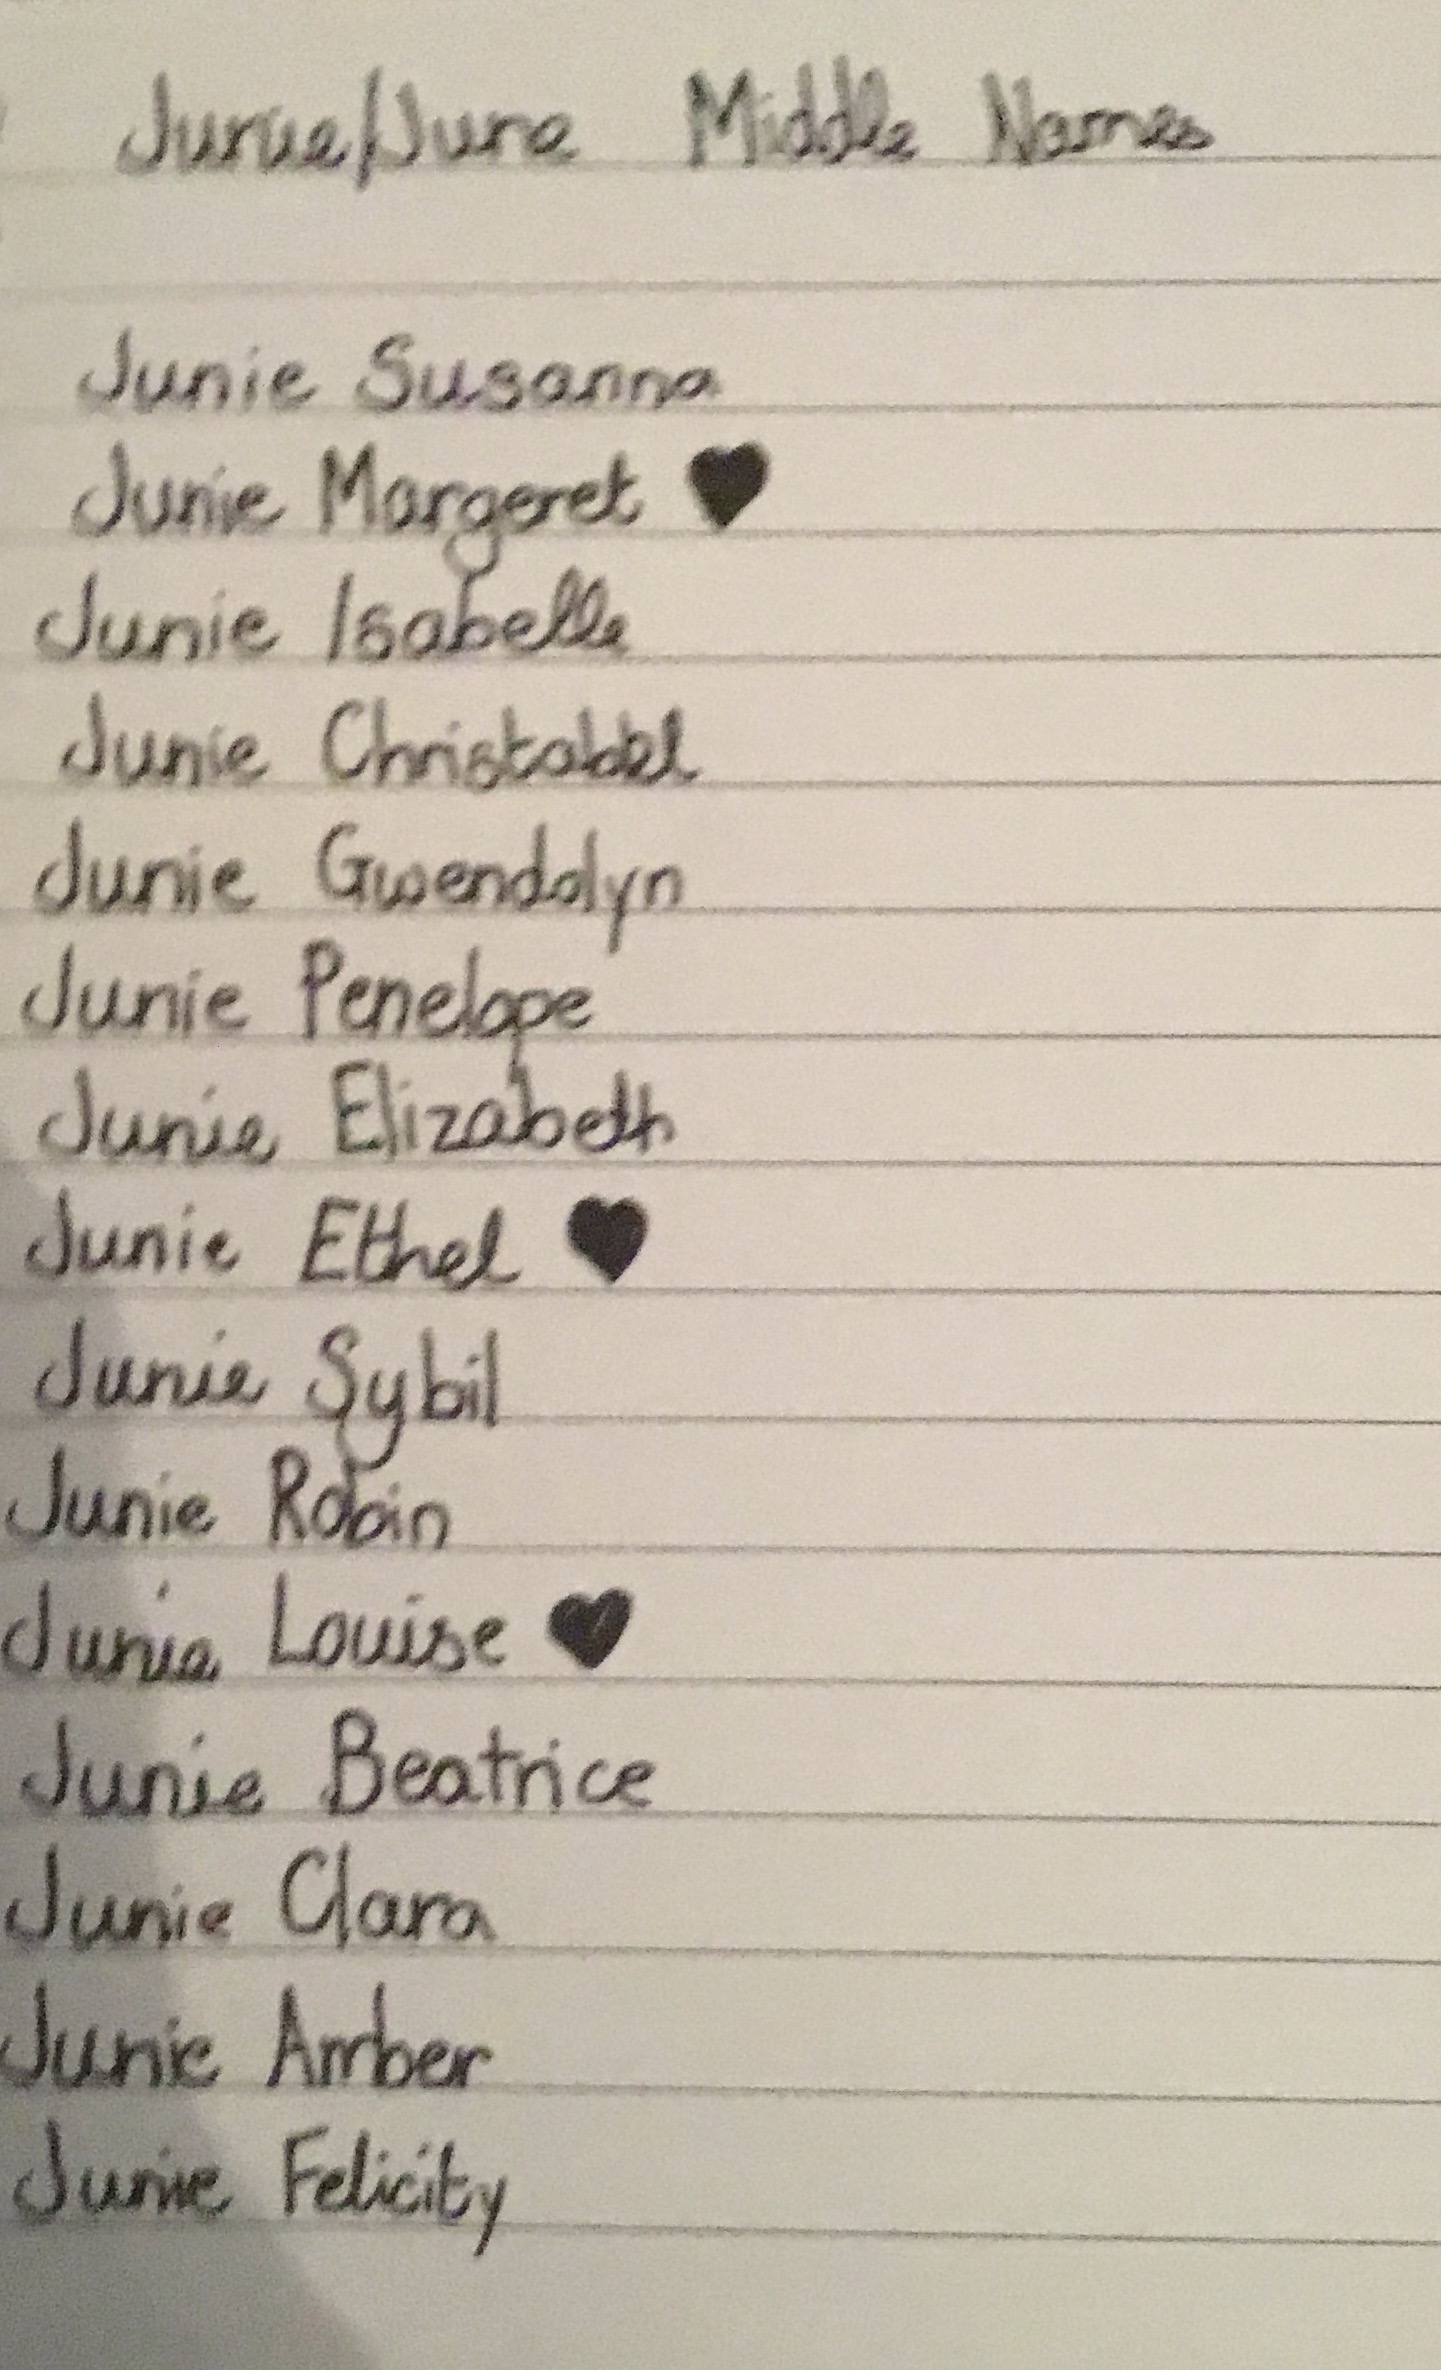 Junie/June Middle Names
Junie Susanna
Junie Margeret ♥
Junie Isabelle
Junie Christabel
Junie Gwendolyn
Junie Penelope
Junie Elizabeth
Junie Ethel ♥
Junie Sybil
Junie Robin
Junie Louise ♥
Junie Beatrice
Junie Clara
Junie Amber
Junie Felicity